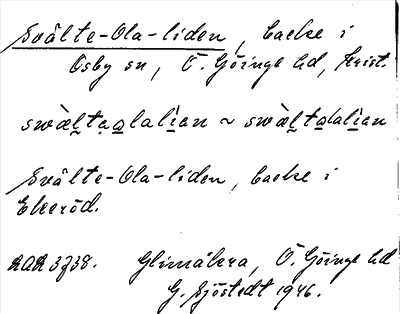 Svälte-Ola-liden, backe i
Osby sn, Ö. Göinge hd, Krist.
swàltaalalían ~ swàltalalían
Svälte-Ola-liden, backe i
Ekeröd.
Glimåkra, Ö. Göinge hd
G. Sjöstedt 1946.